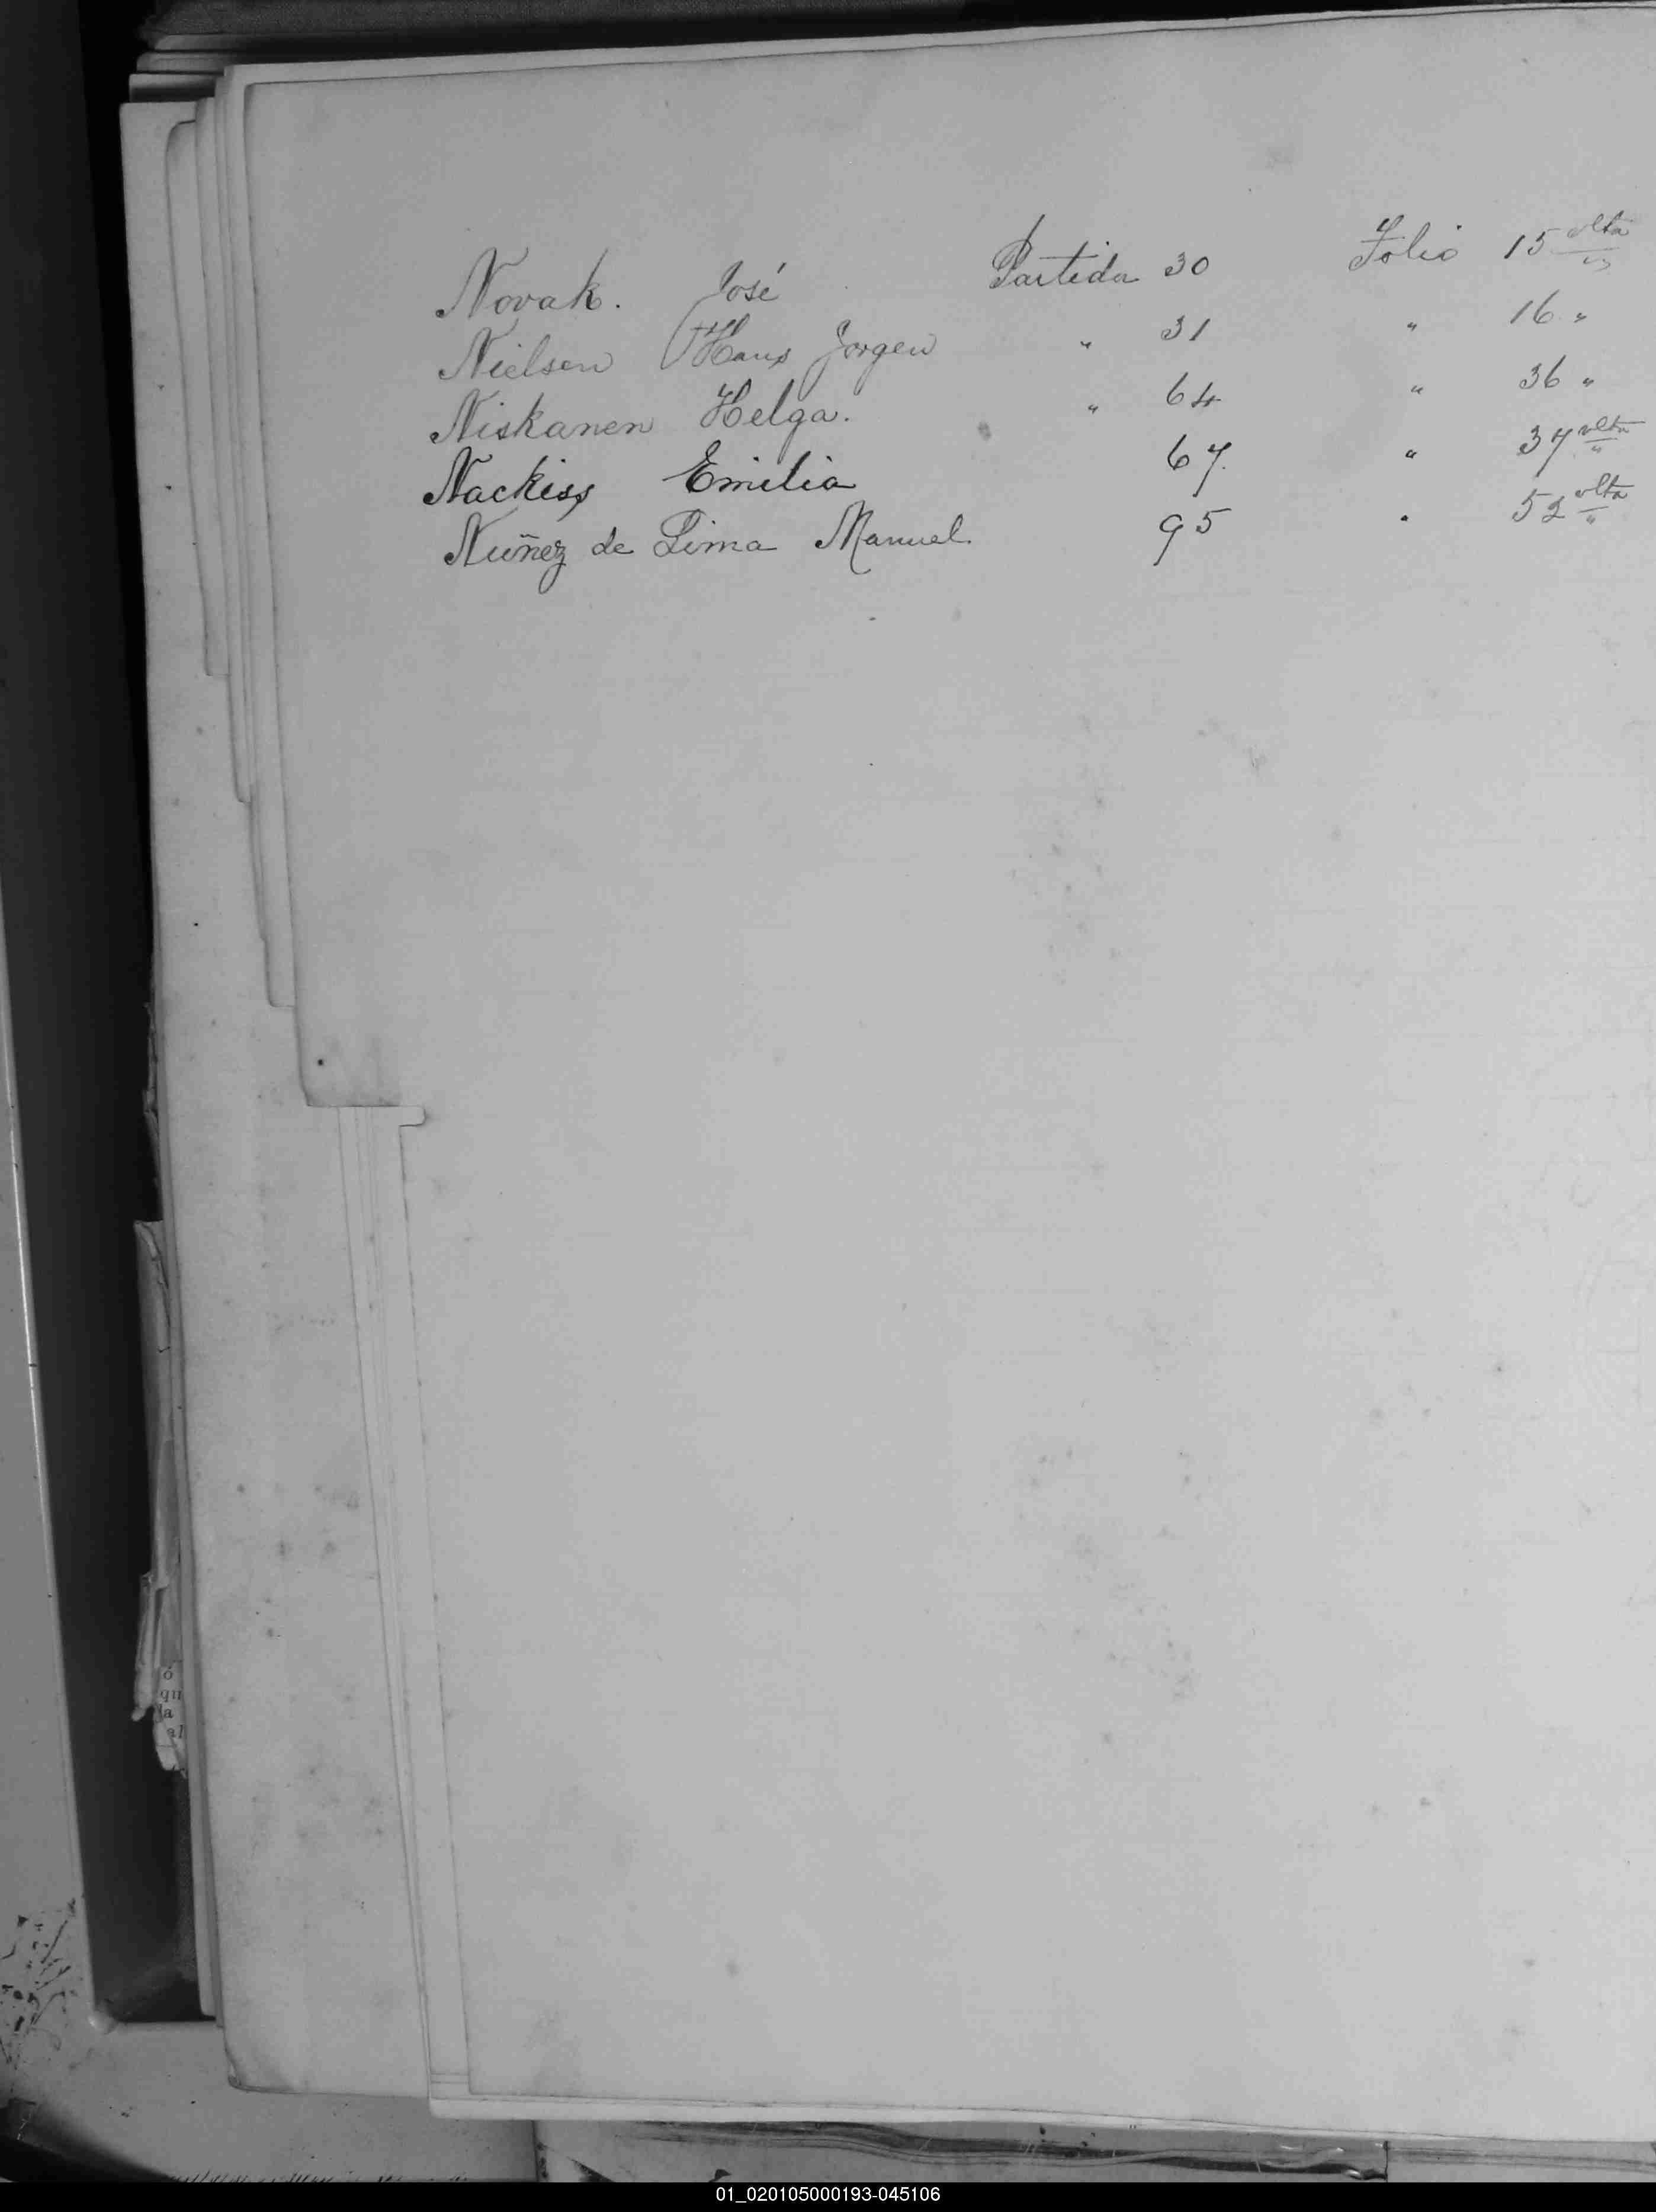 Novak. José Partida 30 Folio 15 vlta
Nielsen Hans Jorgen " 31 " 16 "
Niskanen Helga. " 64 " 36 "
Nackiss Emilia 67. " 37 vlta "
Nuñez de Lima Manuel. 95 " 52 vlta "
M
ó
qu
la
al
01_020105000193-045106